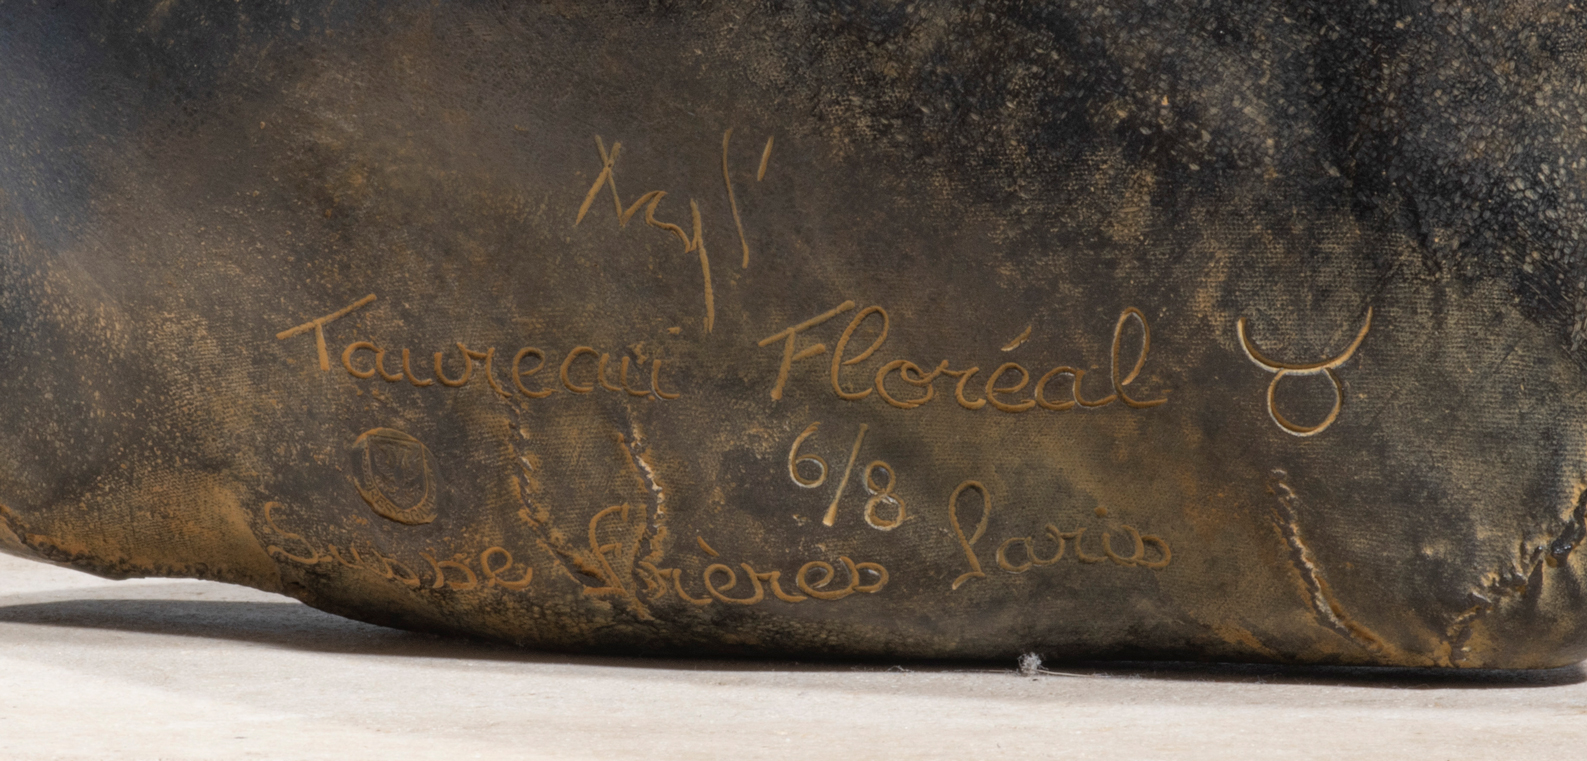 Taureau Floréal ♉
6/8
Susse Frères Paris